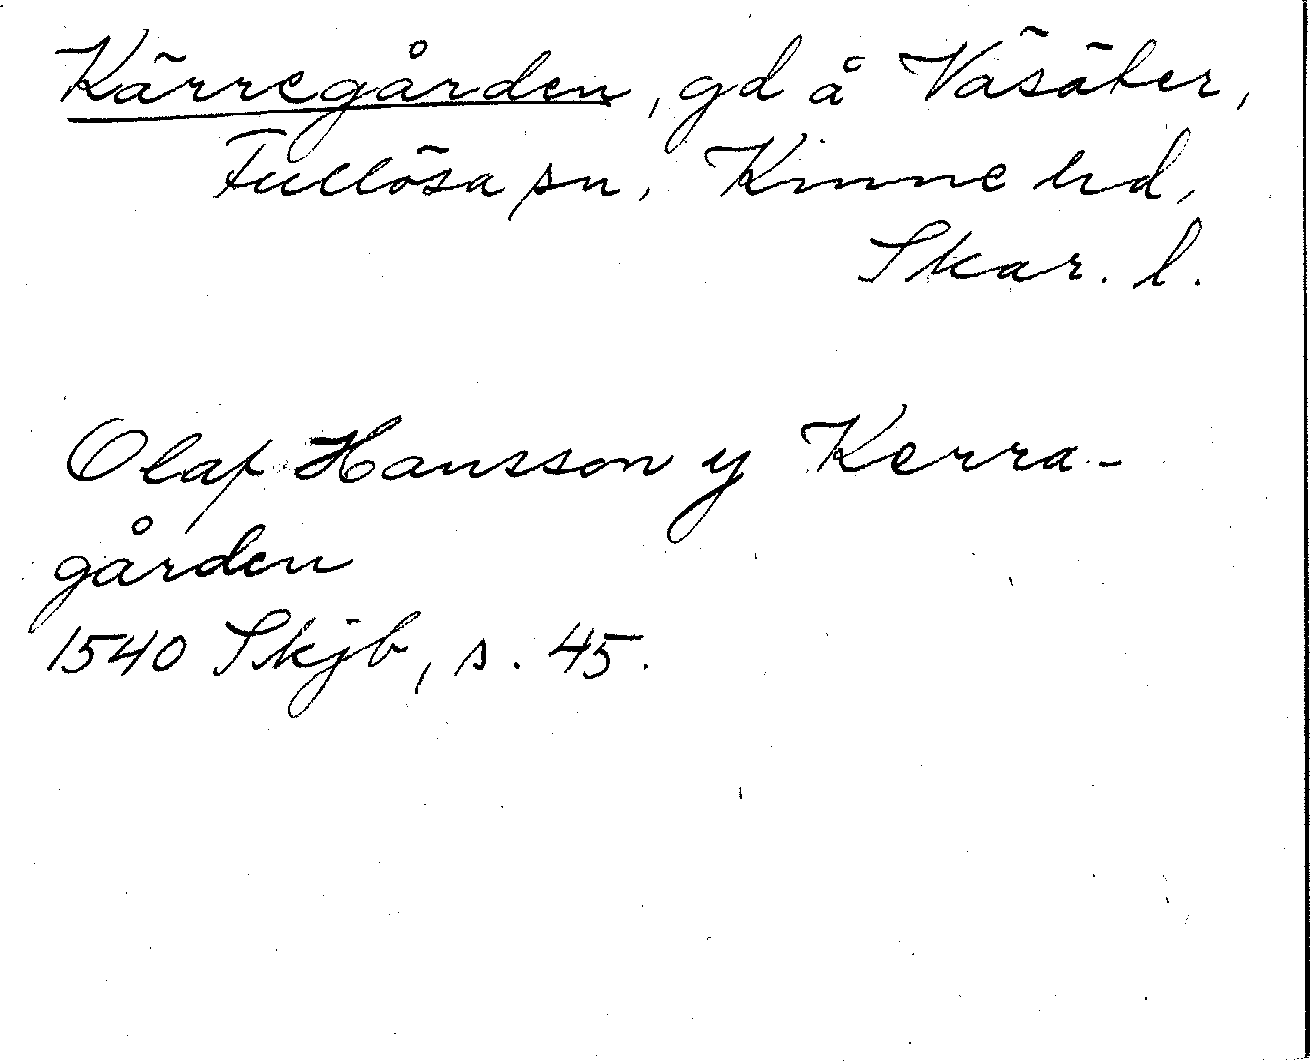 Kärregården, gd å Väsäter,
Fullösa sn, Kinne hd,
Skar. l.
Olaf Hansson y Kerra-
gården
1540 Skjb, s. 45.